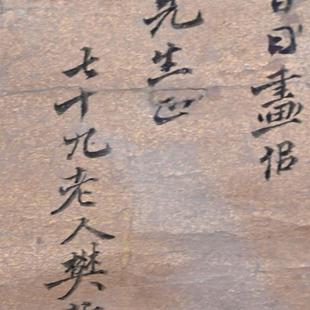 日畫侶
先生正
七十九老人樊